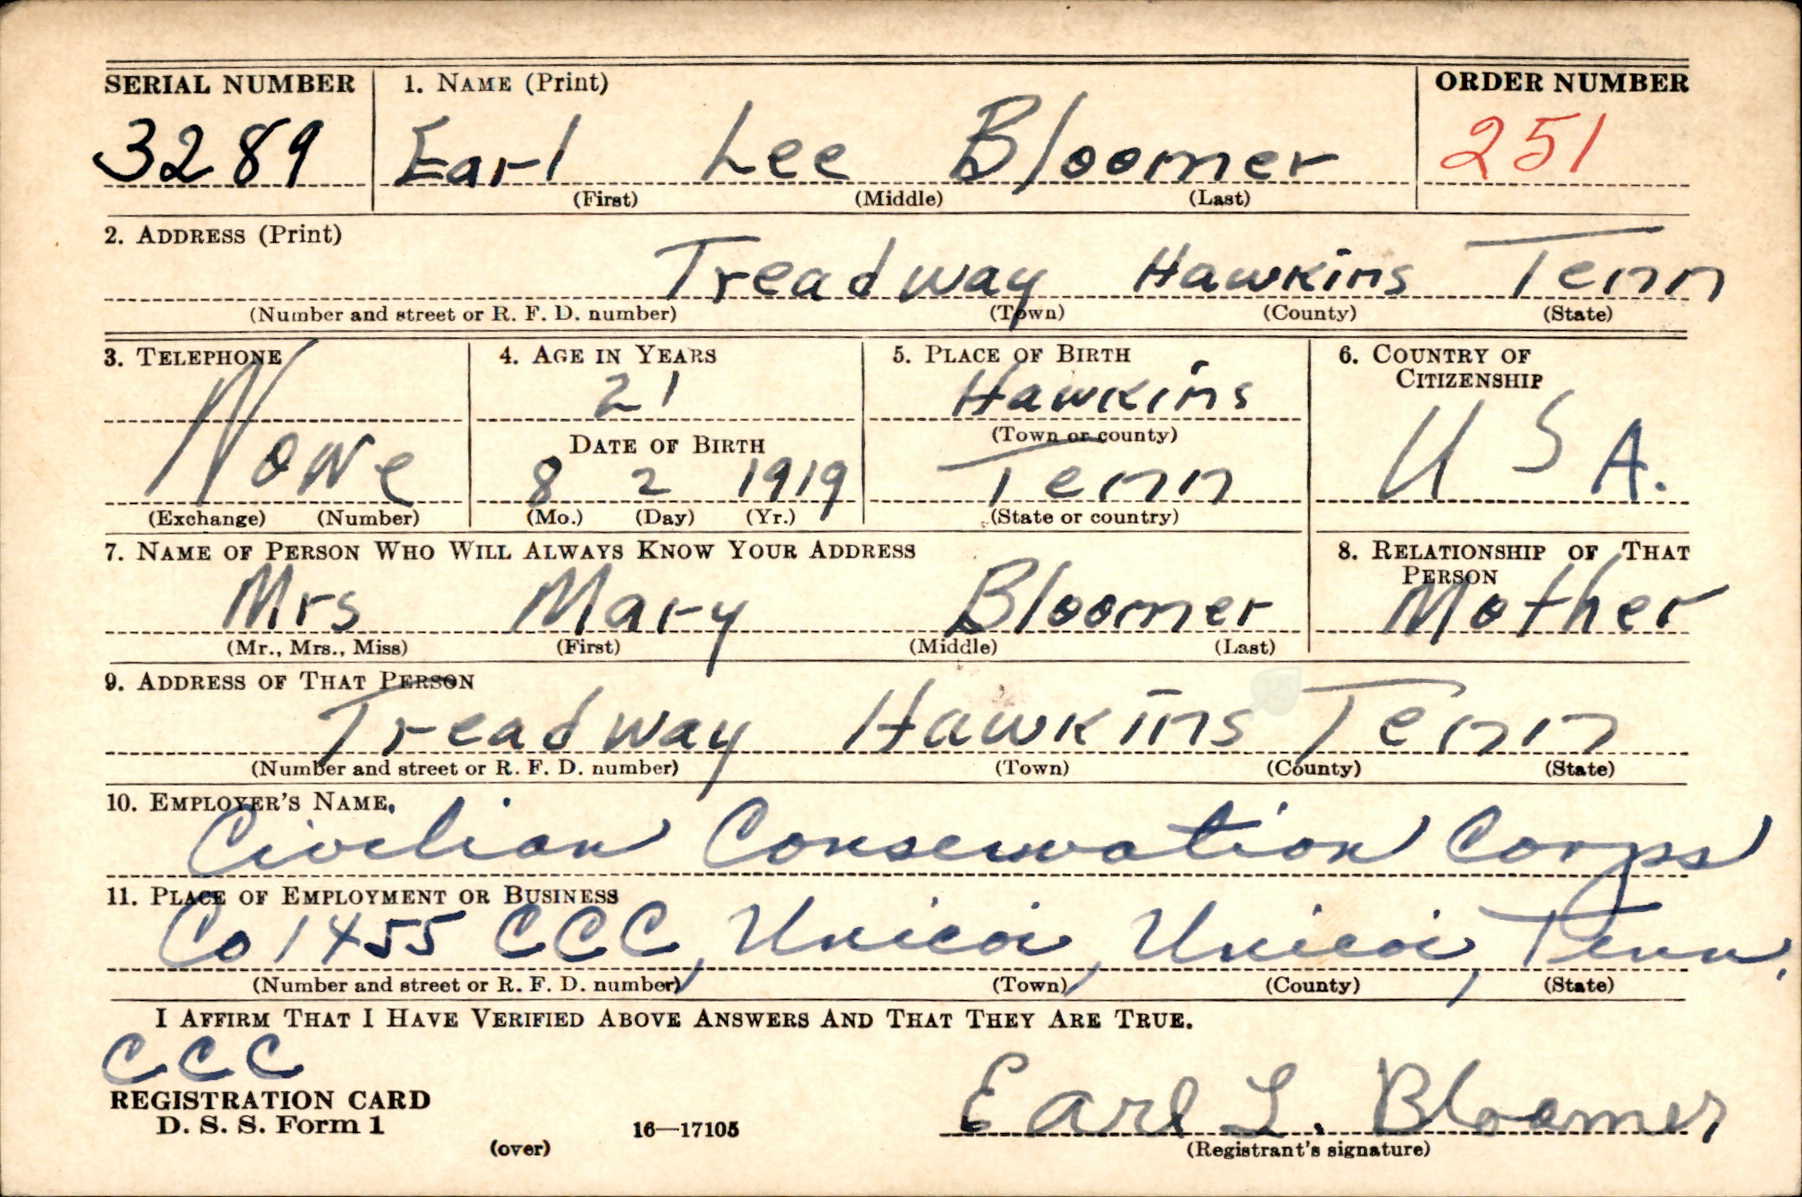 SERIAL NUMBER 1. NAME (Print) ORDER NUMBER
3289 Earl Lee Bloomer 251
(First) (Middle) (Last)
2. ADDRESS (Print)
Treadway Hawkins Tenn
(Number and street or R. F. D. number) (Town) (County) (State)
3. TELEPHONE 4. AGE IN YEARS 5. PLACE OF BIRTH 6. COUNTRY OF
CITIZENSHIP
21 Hawkins
DATE OF BIRTH (Town or county)
None 8 2 1919 Tenn U S A.
(Exchange) (Number) (Mo.) (Day) (Yr.) (State or country)
7. NAME OF PERSON WHO WILL ALWAYS KNOW YOUR ADDRESS 8. RELATIONSHIP OF THAT
PERSON
Mrs Mary Bloomer Mother
(Mr., Mrs., Miss) (First) (Middle) (Last)
9. ADDRESS OF THAT PERSON
Treadway Hawkins Tenn
(Number and street or R. F. D. number) (Town) (County) (State)
10. EMPLOYER'S NAME,
Civilian Conservation Corps
11. PLACE OF EMPLOYMENT OR BUSINESS
Co 1455 CCC, Unicoi, Unicoi, Tenn.
(Number and street or R. F. D. number) (Town) (County) (State)
I AFFIRM THAT I HAVE VERIFIED ABOVE ANSWERS AND THAT THEY ARE TRUE.
CCC
REGISTRATION CARD
D. S. S. Form 1 Earl L. Bloomer
(over) 16—17105 (Registrant's signature)